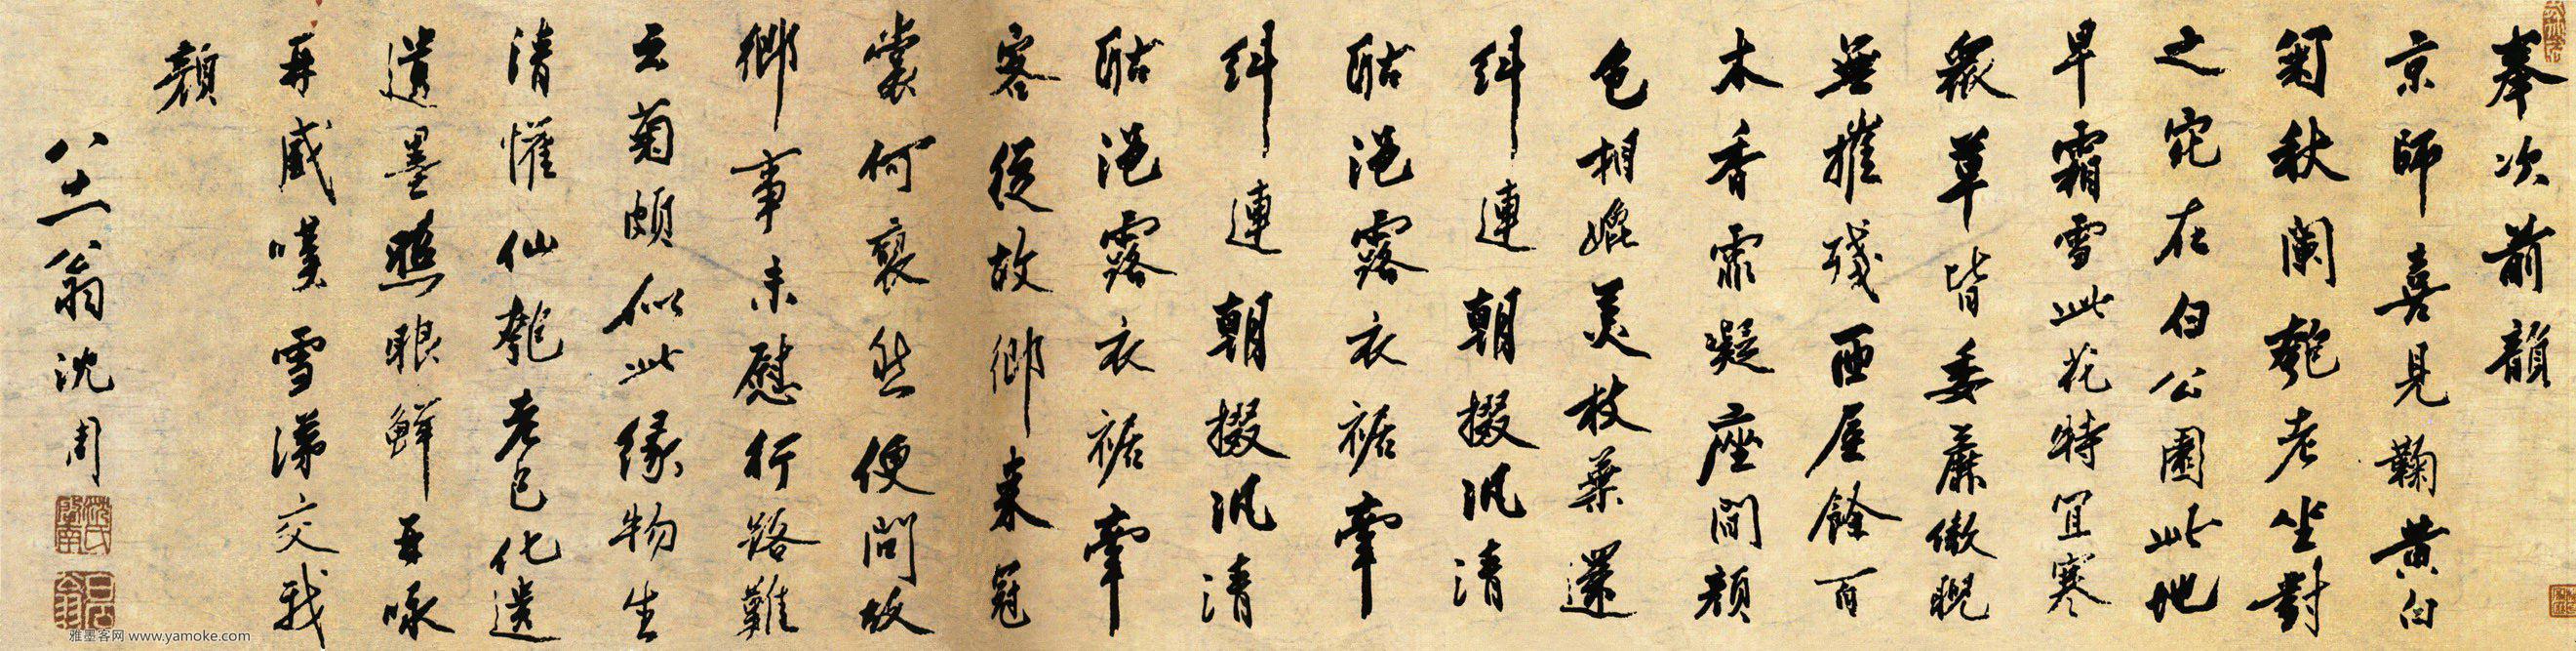 奉次前韻
京師喜見鞠黄白
菊秋闌匏老坐對
之宛在白公園此地
早霜雪此花特宜寒
衆草皆委靡傲睨
無摧殘西屋餘百
木香霏凝座間顏
色相媲美枝葉還
糾連朝掇汎清
酤浥露衣裾牽
糾連朝掇汎清
酤浥露衣裾牽
客從故鄉來冠
裳何褎然便問故
鄉事未慰行路難
云菊頗似此緣物生
清懽仙匏老已化遺
遺墨照眼鮮吾咏
再感嘆雪涕交我
顏
八十一翁沈周
沈氏啓南
白石翁
雅墨客网 www.yamoke.com